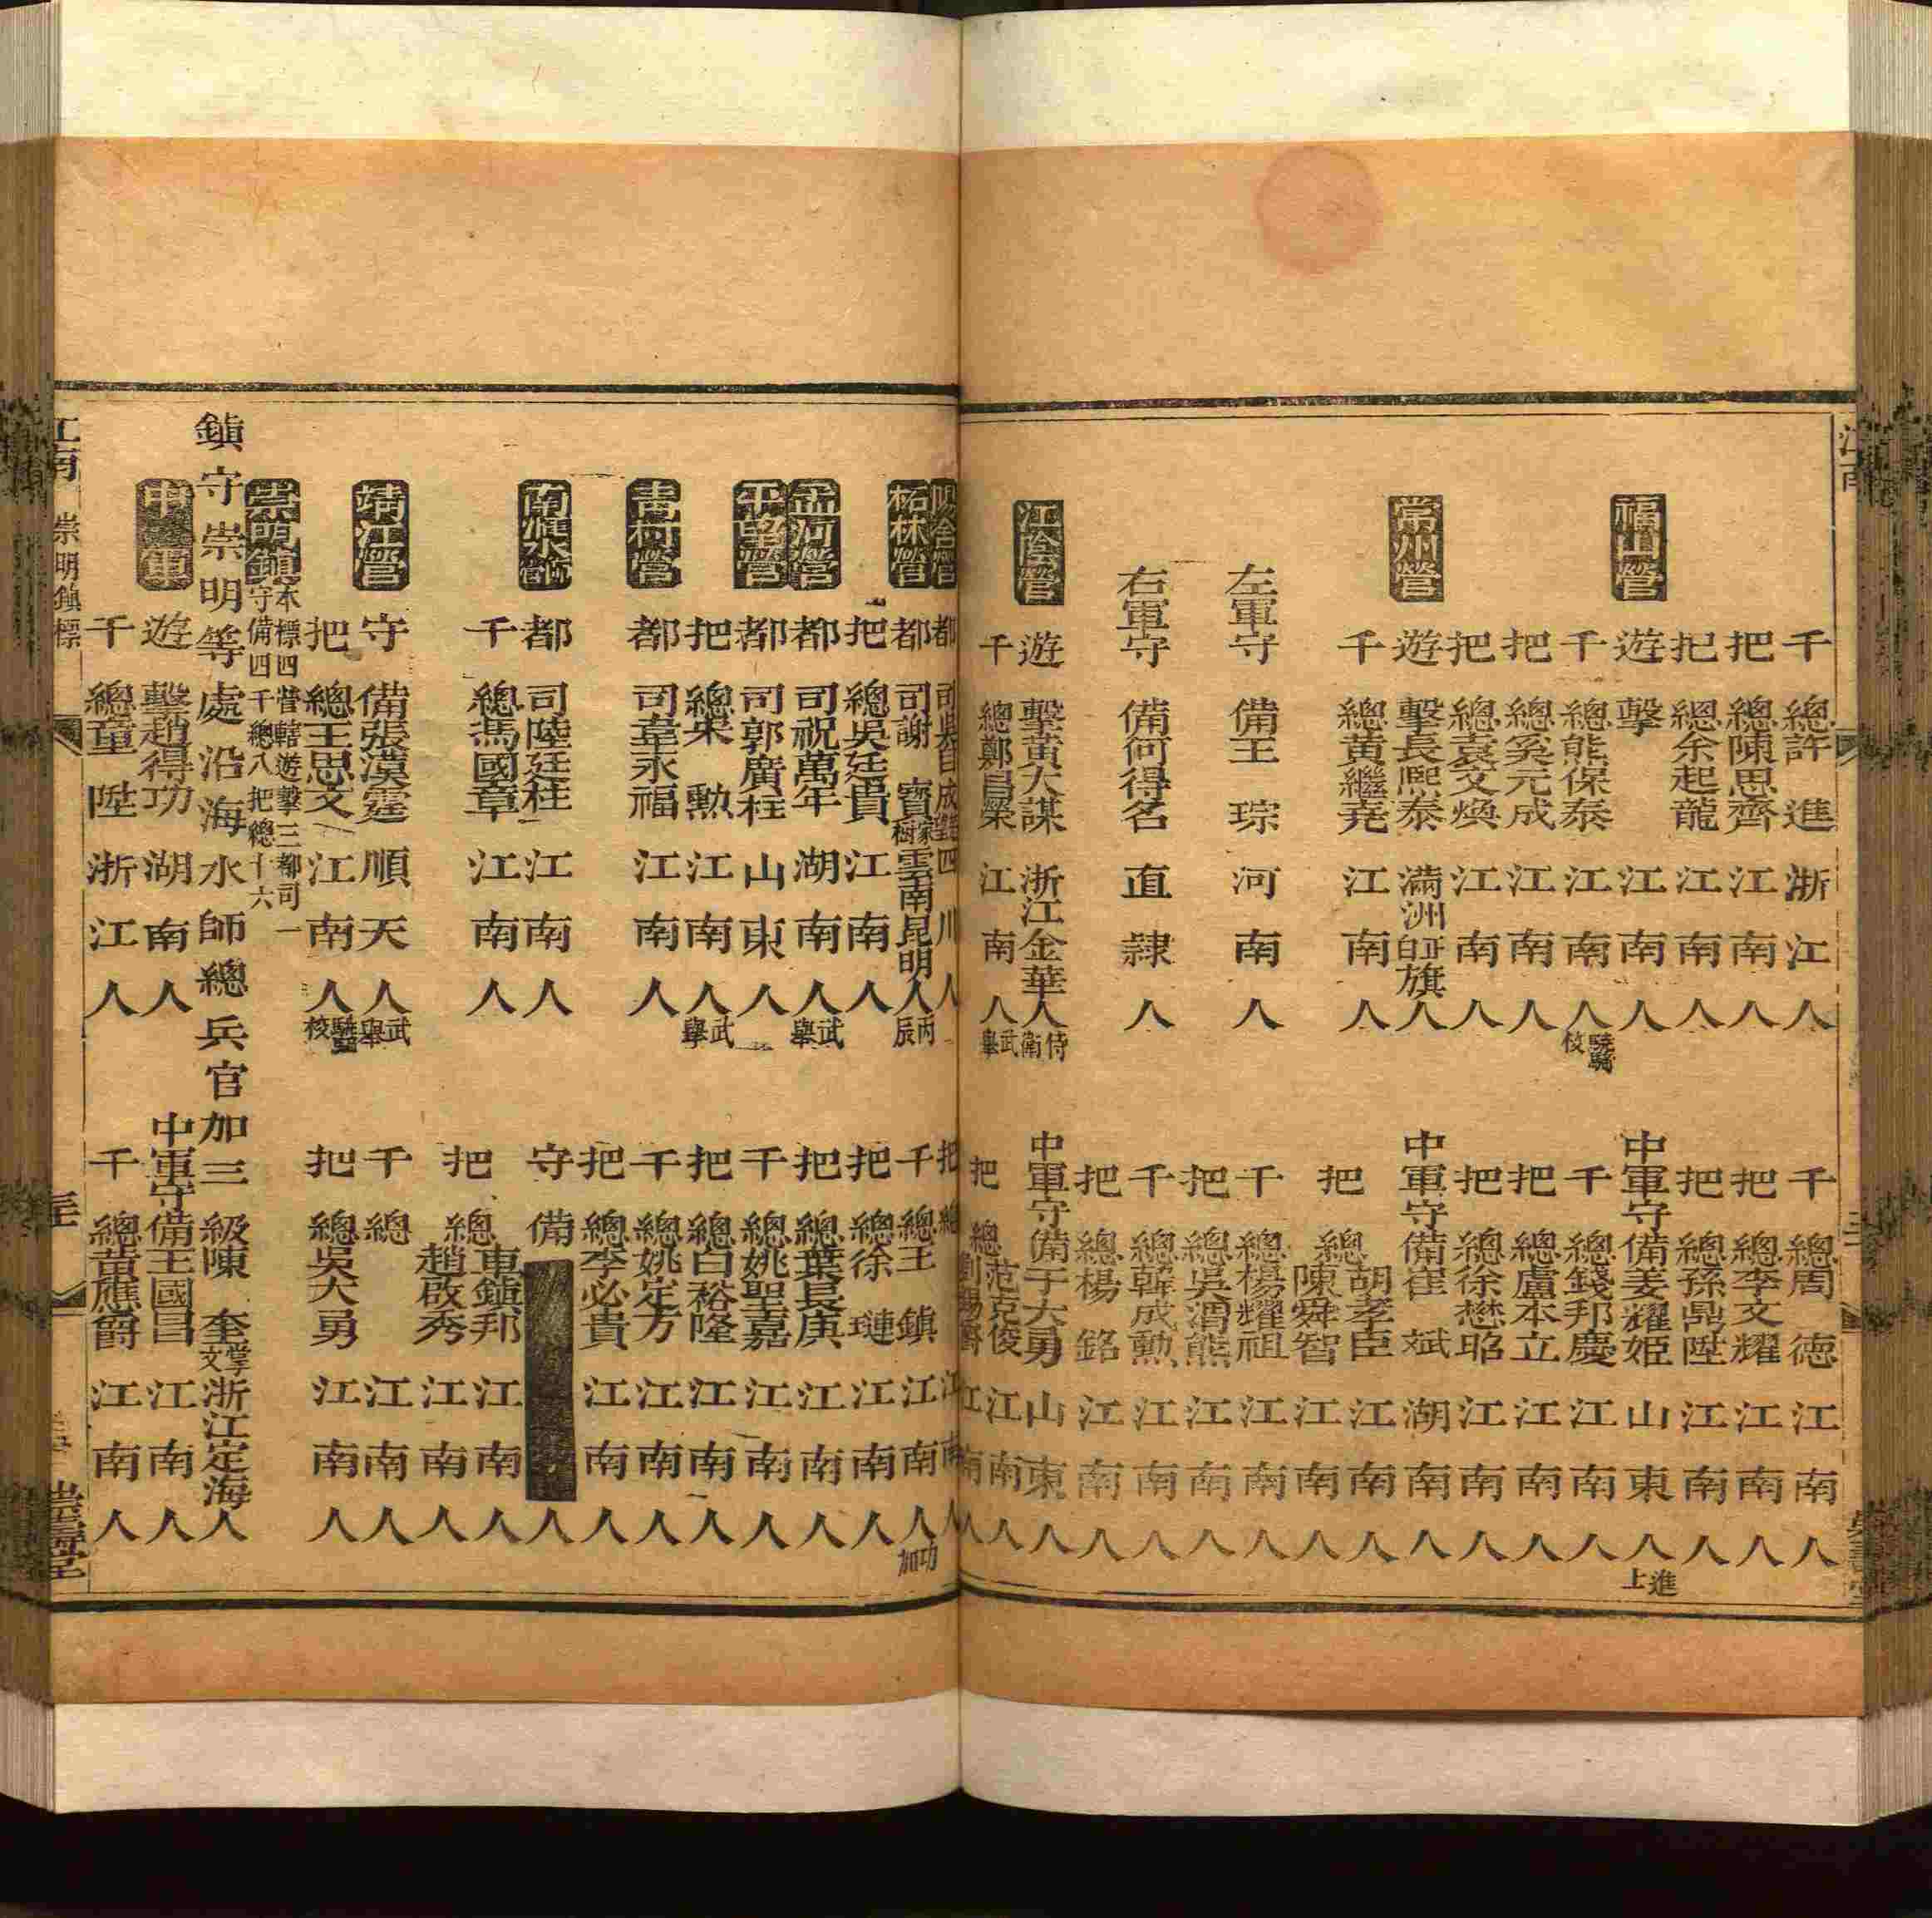 江南
千總許進浙江人
千總周德江南人
把總陳思齊江南人
把總李文耀江南人
把總余起龍江南人
把總孫鼎陞江南人
福山營
遊擊江南人
中軍守備姜耀姬山東人進上
千總熊保泰江南人驍騎校
千總錢邦慶江南人
把總奚元成江南人
把總盧本立江南人
把總袁文煥江南人
把總徐懋昭江南人
常州營
遊擊長熙泰滿洲正白旗人
中軍守備崔斌湖南人
千總黃繼堯江南人
把總胡孝臣江南人
陳舜智江南人
左軍守備王琮河南人
千總楊耀祖江南人
把總吳渭熊江南人
右軍守備何得名直隷人
千總韓成勲江南人
把總楊銘江南人
江陰營
遊擊黃大謀浙江金華人侍衛
中軍守備于大勇山東人
千總鄭昌榮江南人武舉
把總范克俊江南人
江南人
楊舍營
都司成四川人
把總江南人
柘林營
都司謝寶樹雲南昆明人丙辰
千總王鎮江南人功加
把總吳廷貴江南人
把總徐璉江南人
孟河營
都司祝萬年湖南人武舉
把總葉長庚江南人
平望營
都司郭廣柱山東人
千總姚聖嘉江南人
把總果勲江南人武舉
把總白裕隆江南人
青村營
都司韋永福江南人
千總姚定方江南人
把總李必貴江南人
南滙水師營
都司陸廷柱江南人
守備人
千總馮國章江南人
把總車鎮邦江南人
趙啟秀江南人
靖江營
守備張漢霆順天人武舉
千總江南人
把總王思文江南人驍騎校
把總吳大勇江南人
崇明鎮
本標四營轄遊擊三都司一
守備四千總八把總十六
鎮守崇明等處沿海水師總兵官加三級陳奎浙江定海人
中軍
遊擊趙得功湖南人
中軍守備王國昌江南人
千總童陞浙江人
千總黃應爵江南人
江南 崇明鎮標